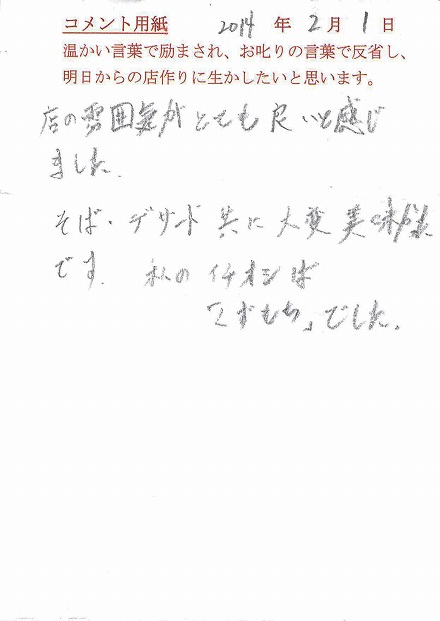 コメント用紙 2014 年 2 月 1 日
温かい言葉で励まされ、お叱りの言葉で反省し、
明日からの店作りに生かしたいと思います。
店の雰囲気がとても良いと感じ
ました。
そば・デザート共に大変美味
です。私のイチオシは
でした。